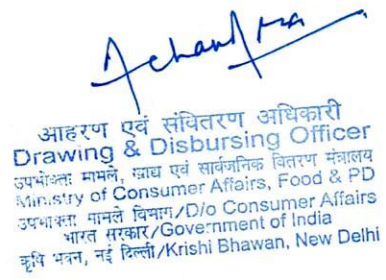 Achandra
आहरण एवं संवितरण अधिकारी
Drawing & Disbursing Officer
उपभोक्ता मामले, खाद्य एवं सार्वजनिक वितरण मंत्रालय
Ministry of Consumer Affairs, Food & PD
उपभोक्ता मामले विभाग/D/o Consumer Affairs
भारत सरकार/Government of India
कृषि भवन, नई दिल्ली/Krishi Bhawan, New Delhi